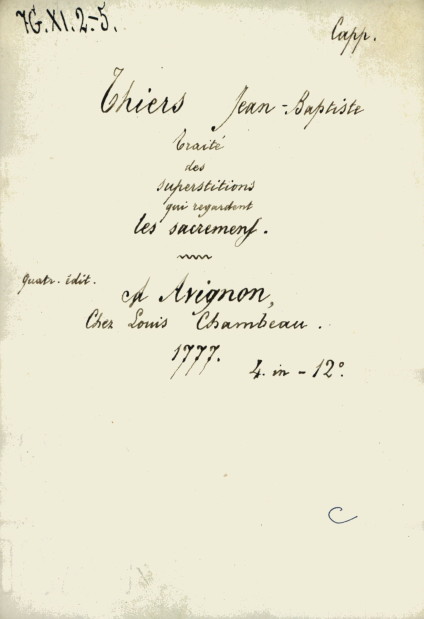 7G.XI.2-5.
Capp.
Thiers Jean-Baptiste
Traité
des
superstitions
qui regardent
les sacremens.
Quatr. édit.
A Avignon,
Chez Louis Chambeau.
1777.
4. in-12°.
C